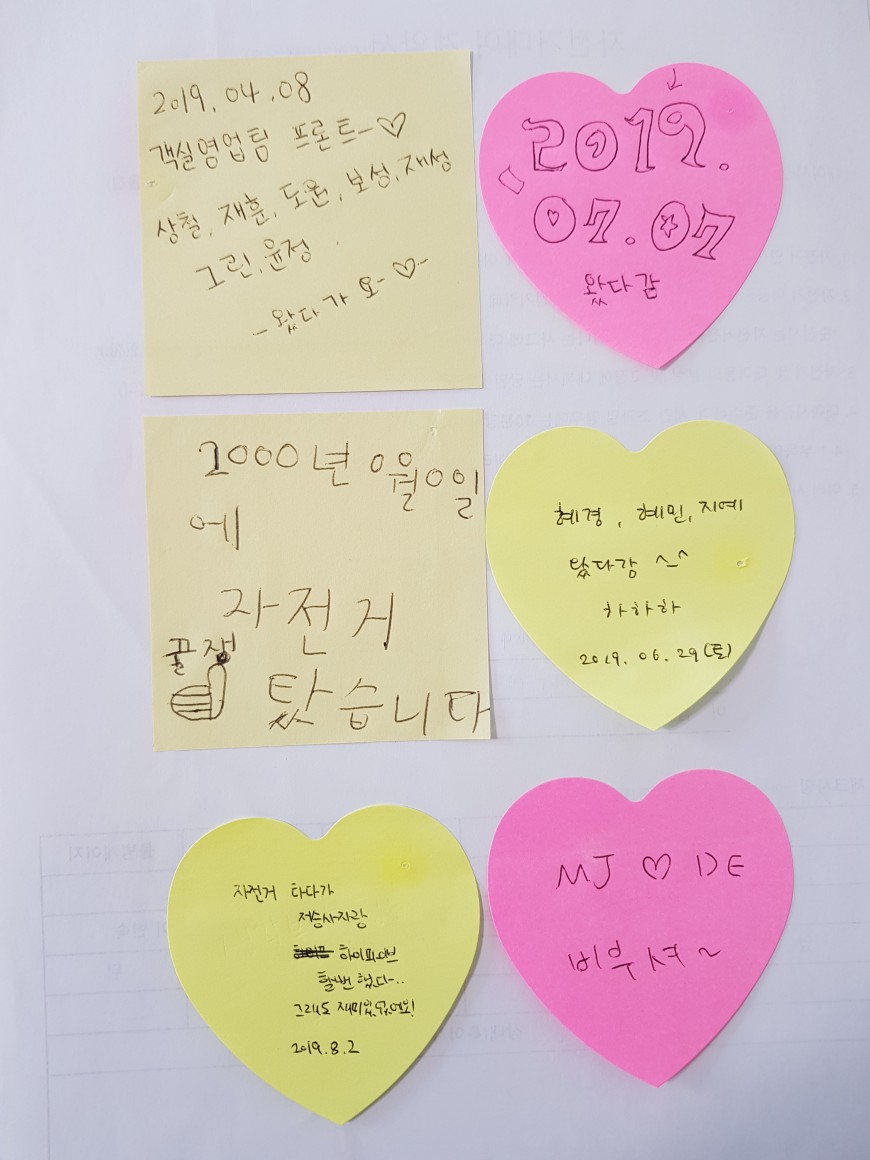 2019. 04. 08
객실영업팀 프론트-♡
상철, 재훈, 도원, 보성, 재성
그린, 윤정
- 왔다가 요- ♡-
2019.
07.07
왔다감
2000년 0월0일
에
자전거
꿀잼
탔습니다
혜경, 혜민, 지예
왔다감 ^_^
하하하
2019. 06. 29(토)
자전거 타다가
저승사자랑
하이파이브
할뻔 했다-..
그래도 재미있었어요!
2019. 8. 2
MJ ♡ DE